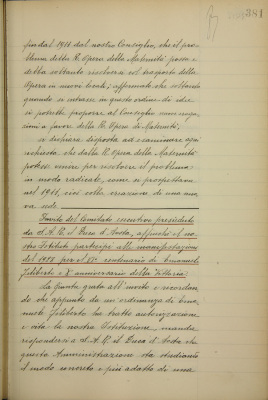 381
fin dal 1911 dal nostro Consiglio, che il pro-
blema della R. Opera della Maternità possa e
debba soltanto risolversi col trasporto della
Opera in nuovi locali; affermato che soltanto
quando si entrasse in quest'ordine di idee
si potrebbe proporre al Consiglio
a favore della R. Opera di Maternità,
si dichiara disposta ad esaminare ogni
richiesta che dalla R. Opera della Maternità
potesse venire per risolvere il problema
in modo radicale, come si prospettava
nel 1911, cioè colla creazione di una nuo-
va sede.
Invito del Comitato esecutivo presieduto
da S.A.R. il Duca d'Aosta, affinché il no-
stro Istituto partecipi alle manifestazioni
del 1928 per il centenario di Emanuele
Filiberto e X° anniversario della Vittoria.
La Giunta grata all'invito e ricordan-
do che appunto da un'ordinanza di Ema-
nuele Filiberto ha tratto autorizzazione
e vita la nostra Istituzione, manda
rispondersi a S.A.R. il Duca d'Aosta che
questa Amministrazione sta studiando
il modo concreto e più adatto di una